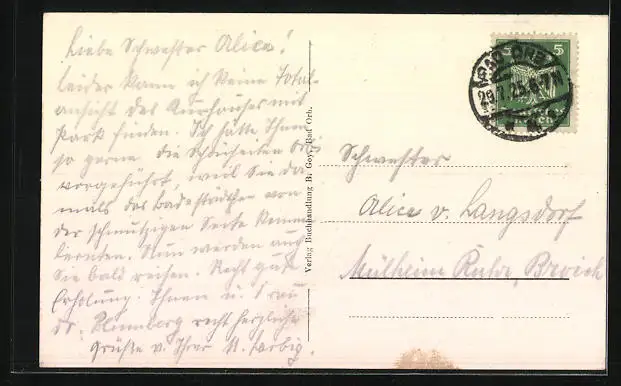 Liebe Schwester Alice!
leider kann ich keine Total
ansicht des Kurhauses mit
Park finden. Ich hätte Ihnen
so gerne die Schönheiten
vorgeführt, weil Sie da
mals das Badestädtchen von
der schmutzigen Seite kennen
lernten. Nun werden auch
Sie bald reisen. Recht gute
Erholung. Ihnen u. Frau
Dr. Blumberg recht herzliche
Grüße v. Ihrer
Verlag Buchhandlung B. Goy, Bad Orb.
5
BAD ORB
29.7.25
Schwester
Alice v. Langsdorf
Mülheim Ruhr, Broich